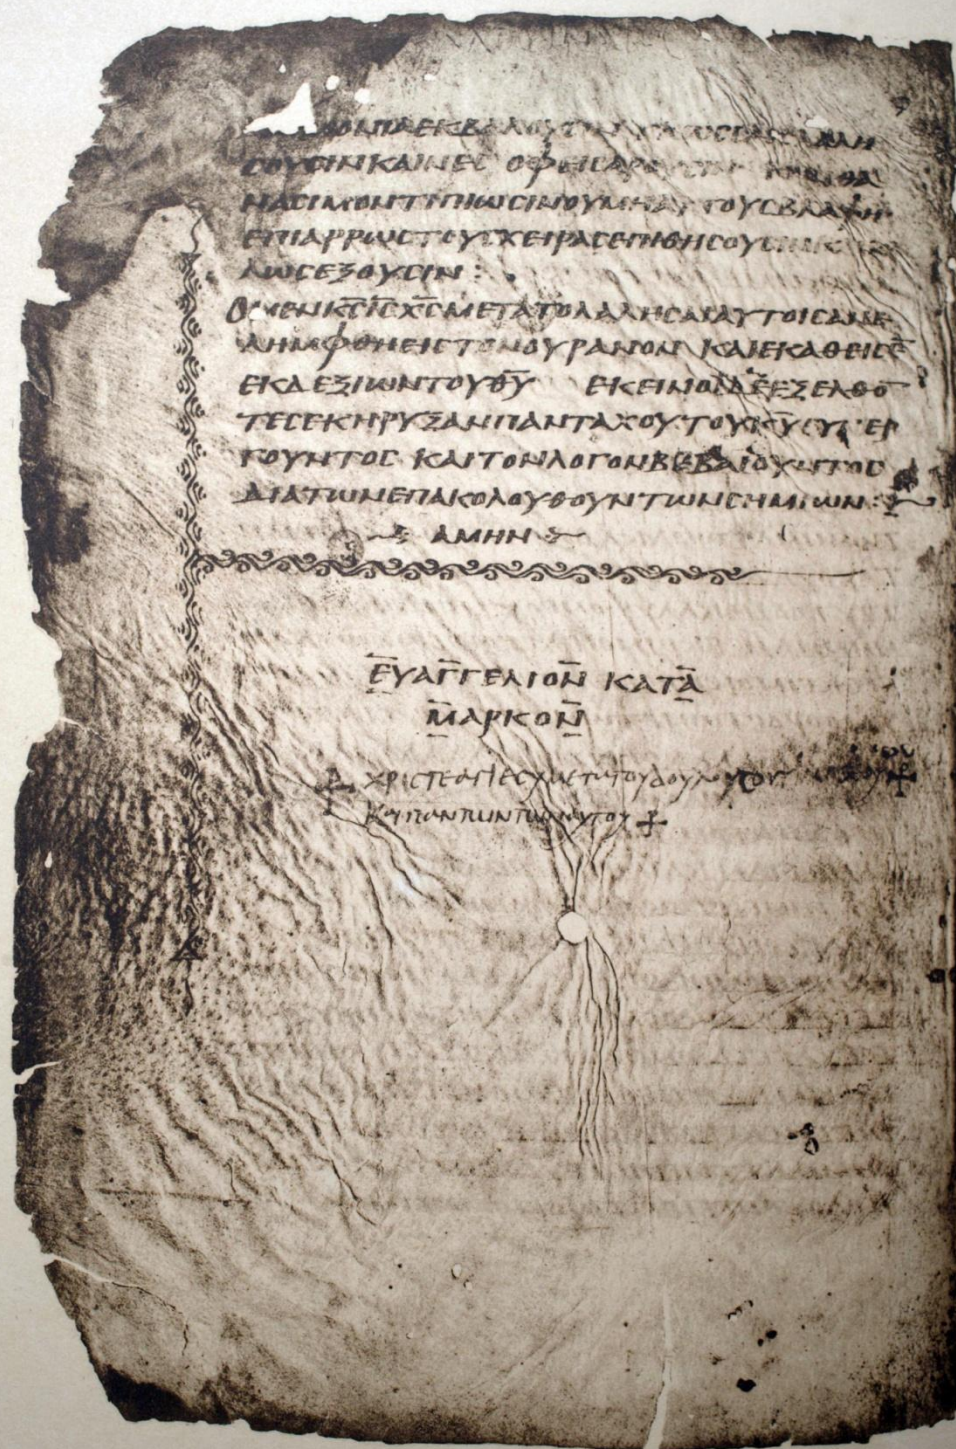 ΟΝΙΑΕΚΒΑΛΟΥCΙΝ ΛΑΛΗ
CΟΥCΙΝΚΑΙΝΕC ΟΦΕΙCΑΡΟΥCΙΝ ΚΑΝΘΑ
ΝΑCΙΜΟΝΤΙΠΙΩCΙΝΟΥΜΗΑΥΤΟΥCΒΛΑΨΗ
ΕΠΙΑΡΡΩCΤΟΥCΧΕΙΡΑCΕΠΙΘΗCΟΥCΙΝΚ
ΛΩCΕΞΟΥCΙΝ :
ΟΜΕΝΚ̅C̅Ι̅C̅Χ̅C̅ΜΕΤΑΤΟΛΑΛΗCΑΙΑΥΤΟΙCΑΝΕ
ΛΗΜΦΘΗΕΙCΤΟΝΟΥΡΑΝΟΝ ΚΑΙΕΚΑΘΕΙCΕ̅
ΕΚΔΕΞΙΩΝΤΟΥΘ̅Υ̅ ΕΚΕΙΝΟΙΔΕΕΞΕΛΘΟ̅
ΤΕCΕΚΗΡΥΞΑΝΠΑΝΤΑΧΟΥΤΟΥΚ̅Υ̅CΥΝΕΡ
ΓΟΥΝΤΟC ΚΑΙΤΟΝΛΟΓΟΝΒΕΒΑΙΟΥΝΤΟC
ΔΙΑΤΩΝΕΠΑΚΟΛΟΥΘΟΥΝΤΩΝCΗΜΙΩΝ :
ΑΜΗΝ
ΕΥΑΓΓΕΛΙΟΝ ΚΑΤΑ
ΜΑΡΚΟΝ
ΧΡΙCΤΕΑΓΙΕCΥΜΕΤΑΤΟΥΔΟΥΛΟΥCΟΥ
ΚΑΙΠΑΝΤΩΝΤΩΝΑΥΤΟΥ